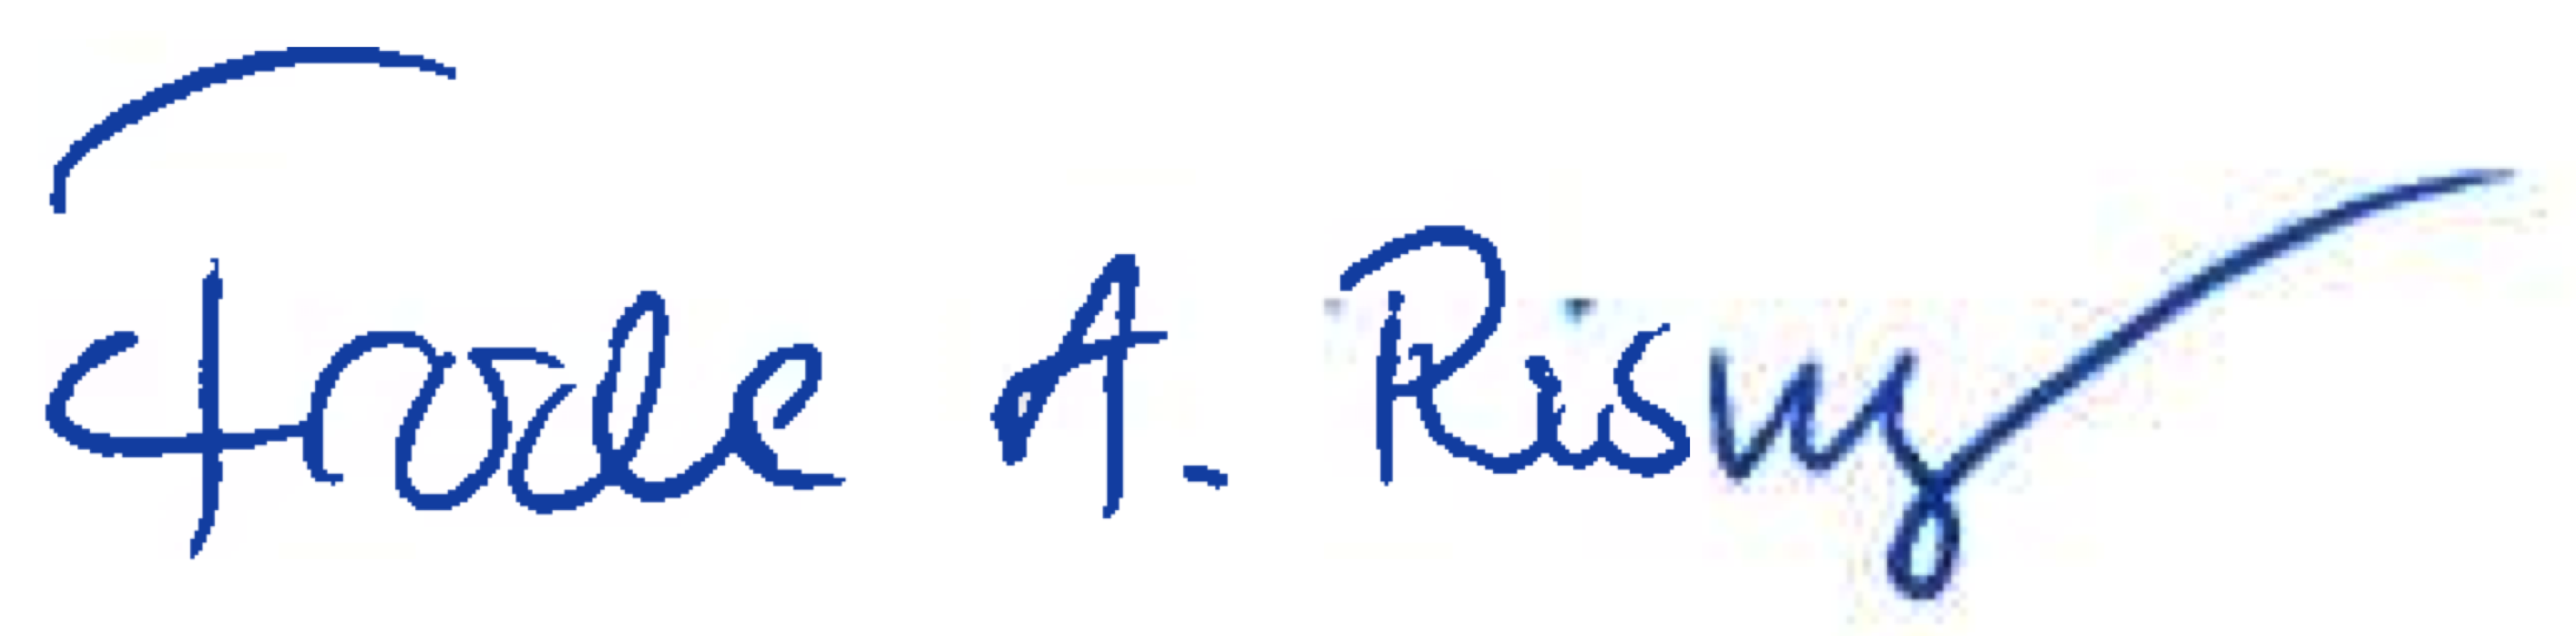 Frode A. Risøy